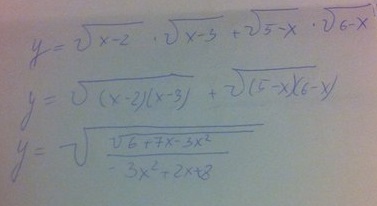 y = √x-2 · √x-3 + √5-x · √6-x
y = √(x-2)(x-3) + √(5-x)(6-x)
y = √(√6+7x-3x² / -3x²+2x+8)